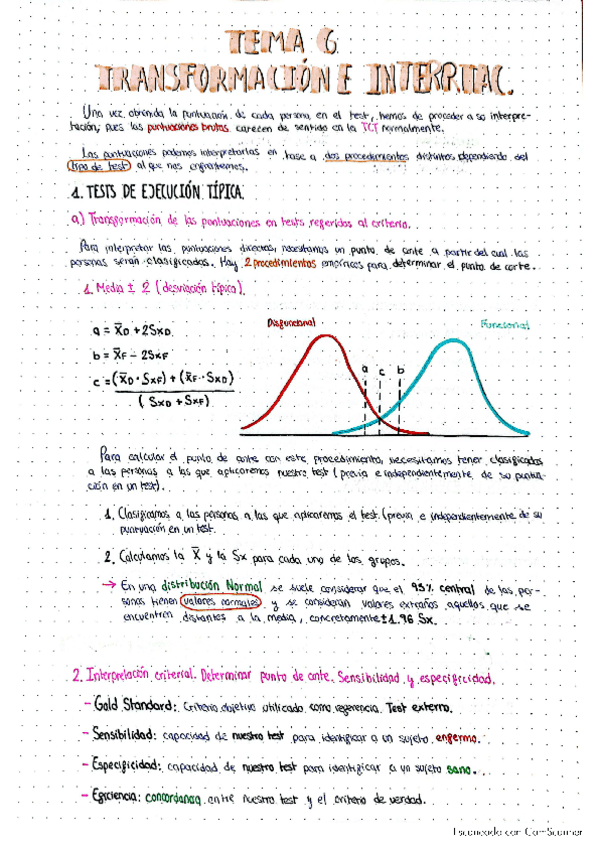 TEMA 6
TRANSFORMACIÓN E INTERPRTAC.
Una vez obtenida la puntuación de cada persona en el test, hemos de proceder a su interpre-
tación, pues las puntuaciones brutas carecen de sentido en la TCT normalmente.
Las puntuaciones podemos interpretarlas en base a dos procedimientos distintos dependiendo del
tipo de test al que nos enfrentemos.
1. TESTS DE EJECUCIÓN TÍPICA.
a) Transformación de las puntuaciones en tests referidos al criterio.
Para interpretar las puntuaciones directas, necesitamos un punto de corte a partir del cual las
personas serán clasificadas. Hay 2 procedimientos empíricos para determinar el punto de corte.
1. Media ± 2 (desviación típica).
Disfuncional
Funcional
a = X̄D + 2SXD
b = X̄F - 2SXF
c = (X̄D · SXF) + (X̄F · SXD)
(SXD + SXF)
a c b
Para calcular el punto de corte con este procedimiento, necesitamos tener clasificados
a las personas a las que aplicaremos nuestro test (previa e independientemente de su puntua-
ción en un test).
1. Clasificamos a las personas a las que aplicaremos el test (previa e independientemente de su
puntuación en un test.
2. Calculamos la X̄ y la Sx para cada uno de los grupos.
→ En una distribución Normal se suele considerar que el 95% central de las per-
sonas tienen valores normales y se consideran valores extraños aquellos que se
encuentren distantes a la media, concretamente ±1.96 Sx.
2. Interpretación criterial. Determinar punto de corte. Sensibilidad y especificidad.
- Gold Standard: Criterio objetivo utilizado como referencia. Test externo.
- Sensibilidad: capacidad de nuestro test para identificar a un sujeto enfermo.
- Especificidad: capacidad de nuestro test para identificar a un sujeto sano.
- Eficiencia: concordancia entre nuestro test y el criterio de verdad.
Escaneado con CamScanner